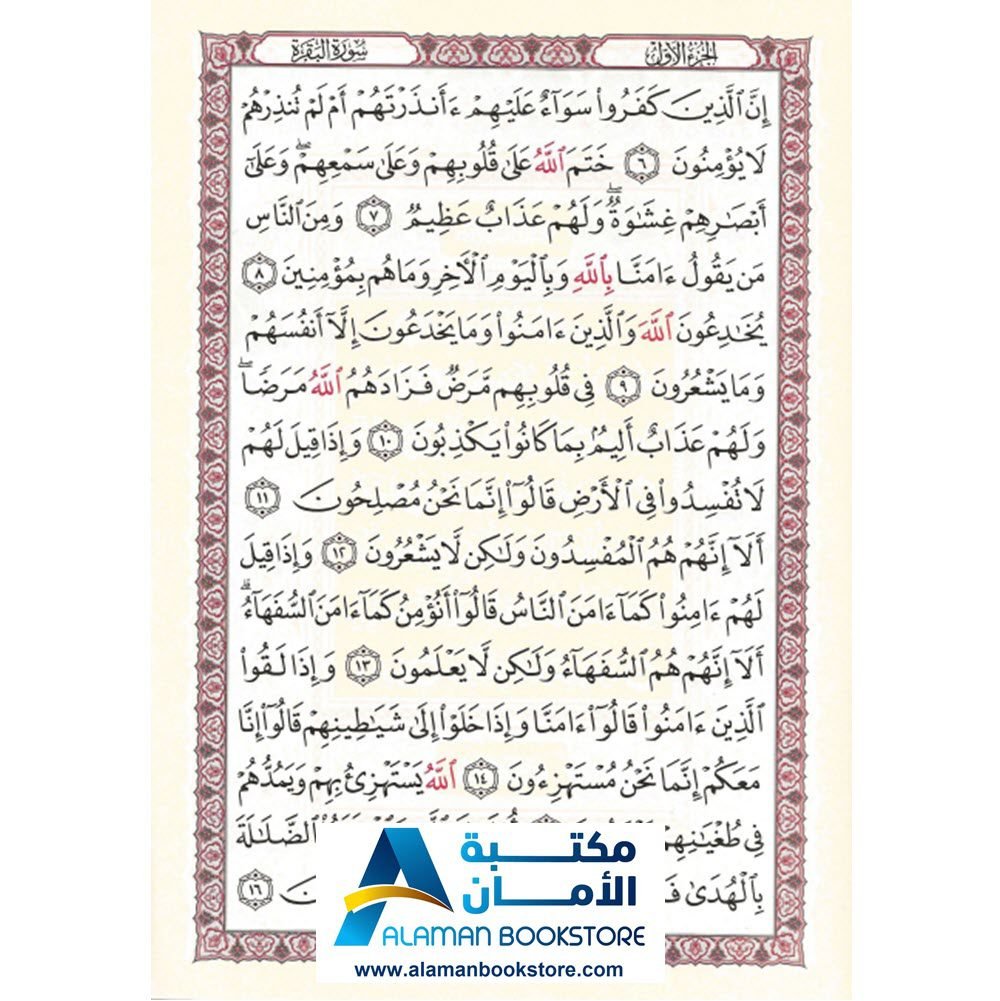 الجزء الأول
سورة البقرة
إِنَّ ٱلَّذِينَ كَفَرُوا۟ سَوَآءٌ عَلَيْهِمْ ءَأَنذَرْتَهُمْ أَمْ لَمْ تُنذِرْهُمْ
لَا يُؤْمِنُونَ ٦ خَتَمَ ٱللَّهُ عَلَىٰ قُلُوبِهِمْ وَعَلَىٰ سَمْعِهِمْ ۖ وَعَلَىٰٓ
أَبْصَٰرِهِمْ غِشَٰوَةٌ ۖ وَلَهُمْ عَذَابٌ عَظِيمٌ ٧ وَمِنَ ٱلنَّاسِ
مَن يَقُولُ ءَامَنَّا بِٱللَّهِ وَبِٱلْيَوْمِ ٱلْـَٔاخِرِ وَمَا هُم بِمُؤْمِنِينَ ٨
يُخَٰدِعُونَ ٱللَّهَ وَٱلَّذِينَ ءَامَنُوا۟ وَمَا يَخْدَعُونَ إِلَّآ أَنفُسَهُمْ
وَمَا يَشْعُرُونَ ٩ فِى قُلُوبِهِم مَّرَضٌ فَزَادَهُمُ ٱللَّهُ مَرَضًا ۖ
وَلَهُمْ عَذَابٌ أَلِيمٌۢ بِمَا كَانُوا۟ يَكْذِبُونَ ١٠ وَإِذَا قِيلَ لَهُمْ
لَا تُفْسِدُوا۟ فِى ٱلْأَرْضِ قَالُوٓا۟ إِنَّمَا نَحْنُ مُصْلِحُونَ ١١
أَلَآ إِنَّهُمْ هُمُ ٱلْمُفْسِدُونَ وَلَٰكِن لَّا يَشْعُرُونَ ١٢ وَإِذَا قِيلَ
لَهُمْ ءَامِنُوا۟ كَمَآ ءَامَنَ ٱلنَّاسُ قَالُوٓا۟ أَنُؤْمِنُ كَمَآ ءَامَنَ ٱلسُّفَهَآءُ ۗ
أَلَآ إِنَّهُمْ هُمُ ٱلسُّفَهَآءُ وَلَٰكِن لَّا يَعْلَمُونَ ١٣ وَإِذَا لَقُوا۟
ٱلَّذِينَ ءَامَنُوا۟ قَالُوٓا۟ ءَامَنَّا وَإِذَا خَلَوْا۟ إِلَىٰ شَيَٰطِينِهِمْ قَالُوٓا۟ إِنَّا
مَعَكُمْ إِنَّمَا نَحْنُ مُسْتَهْزِءُونَ ١٤ ٱللَّهُ يَسْتَهْزِئُ بِهِمْ وَيَمُدُّهُمْ
فِى طُغْيَٰنِهِمْ ٱلضَّلَٰلَةَ
بِٱلْهُدَىٰ ١٦
مكتبة
الأمان
ALAMAN BOOKSTORE
www.alamanbookstore.com